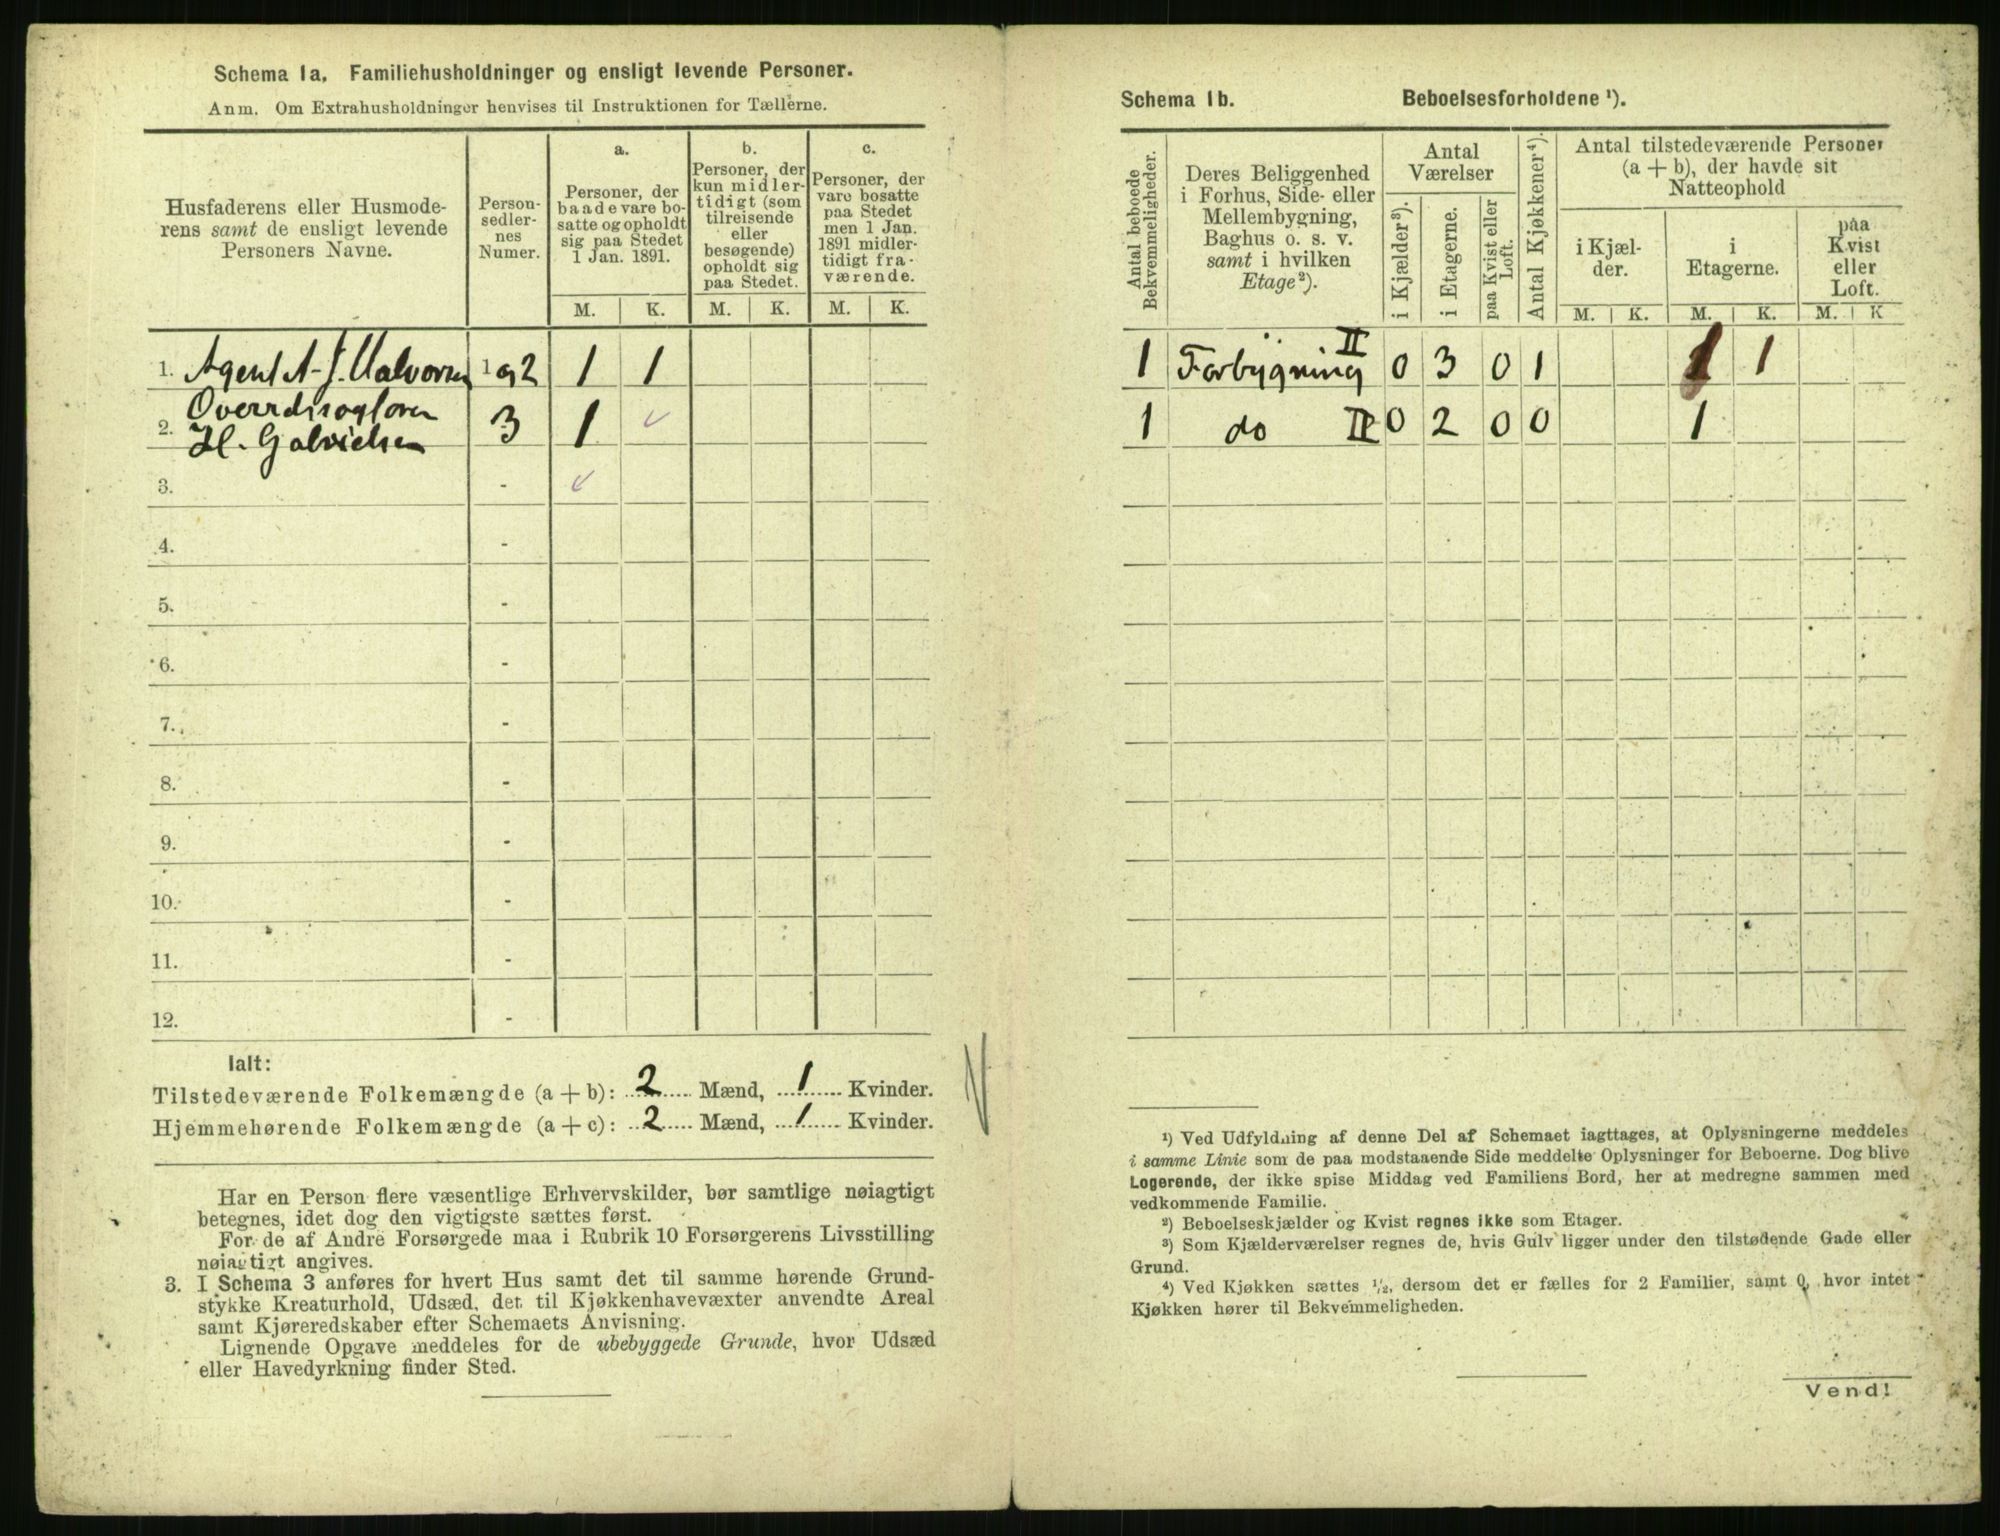 Schema 1a. Familiehusholdninger og ensligt levende Personer.
Anm. Om Extrahusholdninger henvises til Instruktionen for Tællerne.
Husfaderens eller Husmode-
rens samt de ensligt levende
Personers Navne.
Person-
sedler-
nes
Numer.
a.
Personer, der
baade vare bo-
satte og opholdt
sig paa Stedet
1 Jan. 1891.
b.
Personer, der
kun midler-
tidigt (som
tilreisende
eller
besøgende)
opholdt sig
paa Stedet.
c.
Personer, der
vare bosatte
paa Stedet
men 1 Jan.
1891 midler-
tidigt fra-
værende.
M. K. M. K. M. K.
1. Agent A. J. 1 og 2 1 1
2. H. 3 1
3. -
4. -
5. -
6. -
7. -
8. -
9. -
10. -
11. -
12. -
Ialt:
Tilstedeværende Folkemængde (a + b): 2 Mænd, 1 Kvinder.
Hjemmehørende Folkemængde (a + c): 2 Mænd, 1 Kvinder.
Har en Person flere væsentlige Erhvervskilder, bør samtlige nøiagtigt
betegnes, idet dog den vigtigste sættes først.
For de af Andre Forsørgede maa i Rubrik 10 Forsørgerens Livsstilling
nøiagtigt angives.
3. I Schema 3 anføres for hvert Hus samt det til samme hørende Grund-
stykke Kreaturhold, Udsæd, det til Kjøkkenhavevæxter anvendte Areal
samt Kjøreredskaber efter Schemaets Anvisning.
Lignende Opgave meddeles for de ubebyggede Grunde, hvor Udsæd
eller Havedyrkning finder Sted.
Schema 1b. Beboelsesforholdene ¹).
Antal beboede
Bekvemmeligheder.
Deres Beliggenhed
i Forhus, Side- eller
Mellembygning,
Baghus o. s. v.
samt i hvilken
Etage²).
Antal
Værelser
i Kjælder³).
i Etagerne.
paa Kvist eller
Loft.
Antal Kjøkkener⁴).
Antal tilstedeværende Personer
(a + b), der havde sit
Natteophold
i Kjæl-
der.
i
Etagerne.
paa
Kvist
eller
Loft.
M. K. M. K. M. K
1 Forbygning II 0 3 0 1 1 1
1 do II 0 2 0 0 1
¹) Ved Udfyldning af denne Del af Schemaet iagttages, at Oplysningerne meddeles
i samme Linie som de paa modstaaende Side meddelte Oplysninger for Beboerne. Dog blive
Logerende, der ikke spise Middag ved Familiens Bord, her at medregne sammen med
vedkommende Familie.
²) Beboelseskjælder og Kvist regnes ikke som Etager.
³) Som Kjælderværelser regnes de, hvis Gulv ligger under den tilstødende Gade eller
Grund.
⁴) Ved Kjøkken sættes ¹/₂, dersom det er fælles for 2 Familier, samt 0, hvor intet
Kjøkken hører til Bekvemmeligheden.
Vend!